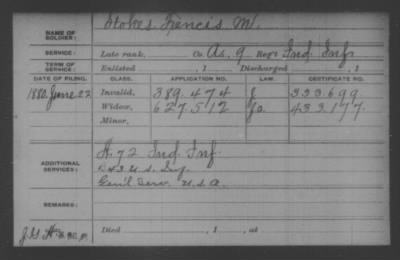 NAME OF SOLDIER: Stokes Francis M.
SERVICE: Late rank, Co. A, 9 Reg't Ind. Inf.
TERM OF SERVICE: Enlisted , 1 Discharged , 1
DATE OF FILING. CLASS. APPLICATION NO. LAW. CERTIFICATE NO.
1880 June 22 Invalid, 389.474 J 333.699
Widow, 627512 Jo. 433.177
Minor,
ADDITIONAL SERVICES: H 72 Ind. Inf.
U.S.
Gen'l Serv U.S.A.
REMARKS:
Died , 1 , at